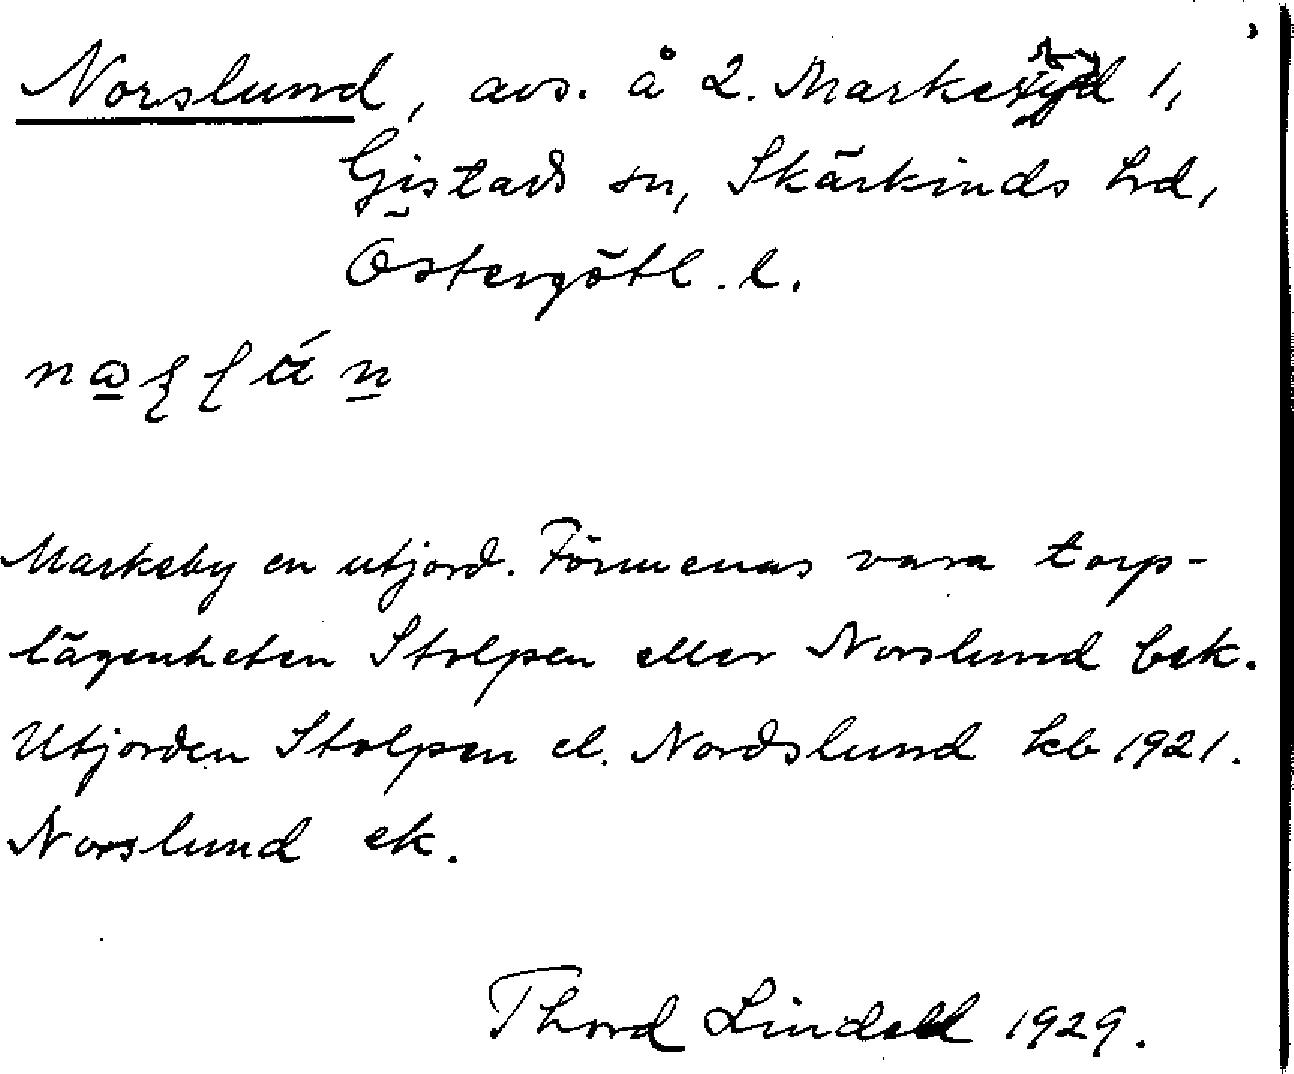 Norslund, avs. å 2. Markeryd 1,
Gistads sn, Skärkinds hd,
Östergötl. l.
Markeby en utjord. Förmenas vara torp-
lägenheten Stolpen eller Norslund bek.
Utjorden Stolpen el. Nordslund kb 1921.
Norslund ek.
Thord Lindell 1929.